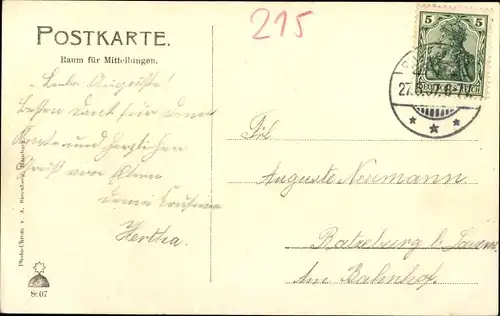 215
POSTKARTE.
Raum für Mitteilungen.
Liebe Auguste!
Besten Dank für Deine
Karte und herzlichen
Gruß von
Deine Cousine
Hertha.
5
DEUTSCHES REICH
27.6.07.
Frl.
Auguste Neumann
Ratzeburg b.
Am Bahnhof.
Photo-Chrom v. A.
8607